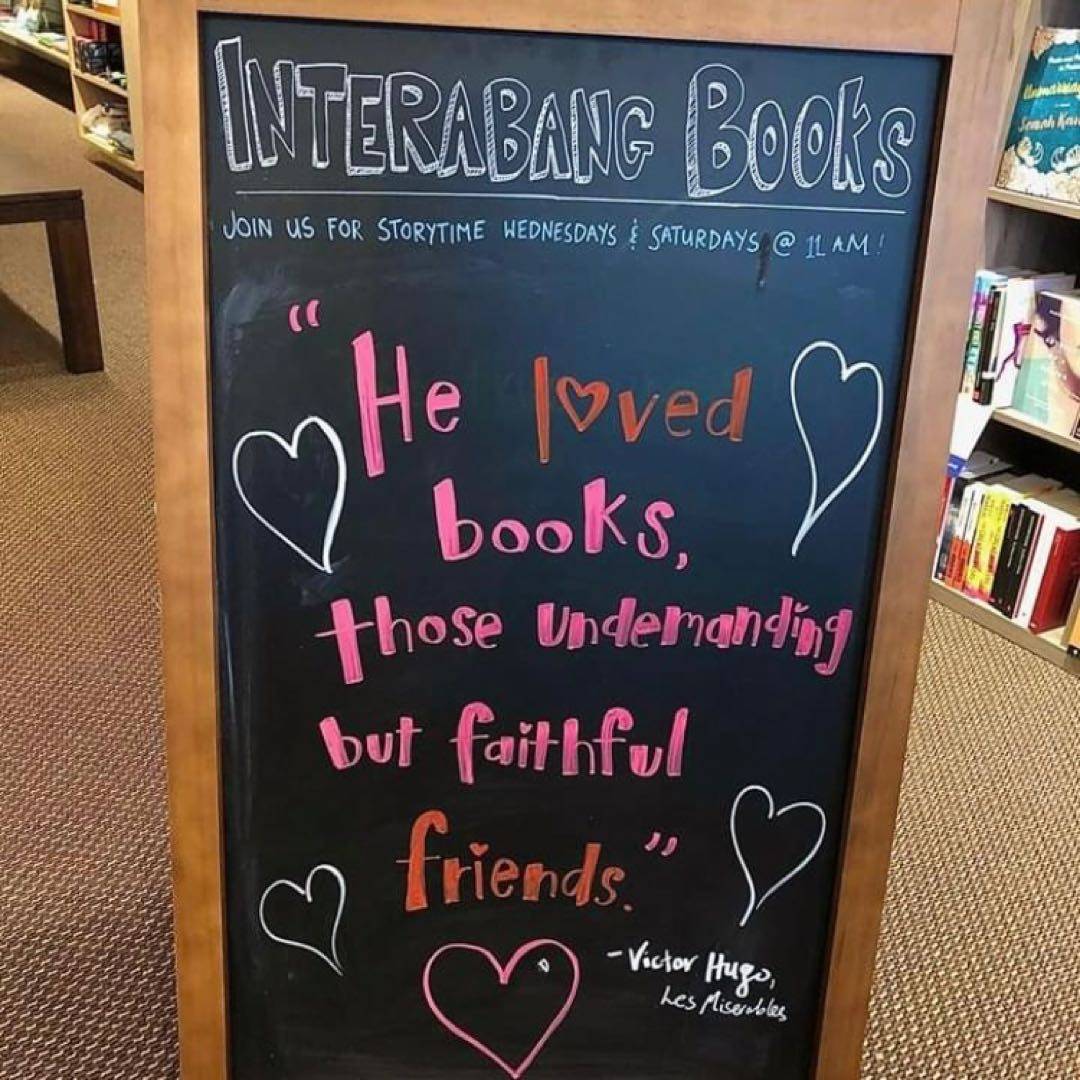 INTERABANG BOOKS
JOIN US FOR STORYTIME WEDNESDAYS & SATURDAYS @ 11 AM!
"He loved
books,
those undemanding
but faithful
friends."
- Victor Hugo,
Les Miserables